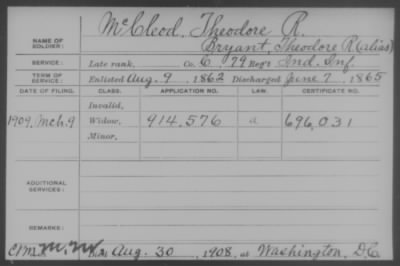 McCleod, Theodore R.
NAME OF SOLDIER: Bryant, Theodore R (alias)
SERVICE: Late rank, Co. C 79 Reg't Ind. Inf.
TERM OF SERVICE: Enlisted Aug. 9, 1862 Discharged June 7, 1865
DATE OF FILING. CLASS. APPLICATION NO. LAW. CERTIFICATE NO.
Invalid,
1909, Mch. 9 Widow, 914.576 a 696,031
Minor,
ADDITIONAL SERVICES:
REMARKS:
Died Aug. 30, 1908, at Washington, DC